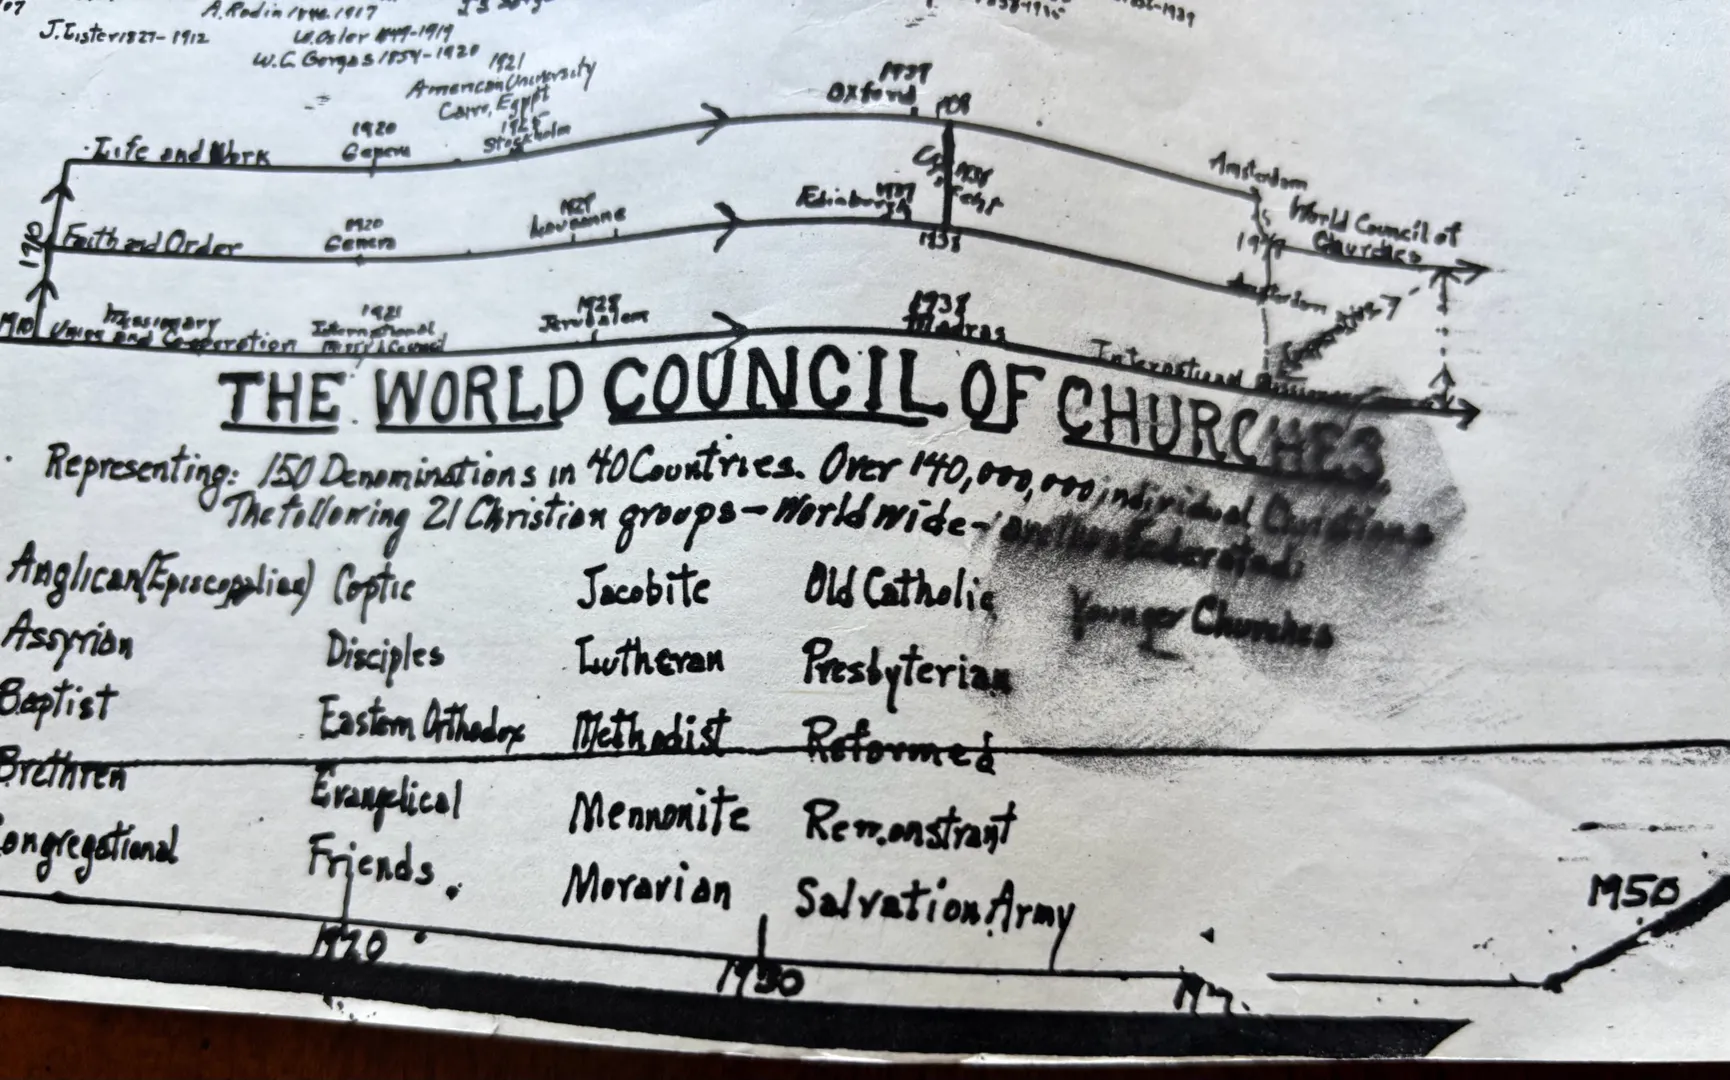 A. Rodin 1840-1917
J. Lister 1827-1912
W. Osler 1849-1919
W. C. Gorgas 1854-1920
1921
American University
Cairo, Egypt
1937
Oxford
Life and Work
1920
Geneva
1925
Stockholm
1938
Amsterdam
World Council of
Churches
1910
Faith and Order
1920
Geneva
1927
Lausanne
1937
Edinburgh
1938
Amsterdam
1910
Missionary
Union and Co-operation
1921
International
1928
Jerusalem
1938
Madras
International
THE WORLD COUNCIL OF CHURCHES
Representing: 150 Denominations in 40 Countries. Over 140,000,000 individual Christians
The following 21 Christian groups - World wide -
Anglican (Episcopalian) Coptic Jacobite Old Catholic Younger Churches
Assyrian Disciples Lutheran Presbyterian
Baptist Eastern Orthodox Methodist Reformed
Brethren Evangelical Mennonite Remonstrant
Congregational Friends Moravian Salvation Army
1920 1930 1950